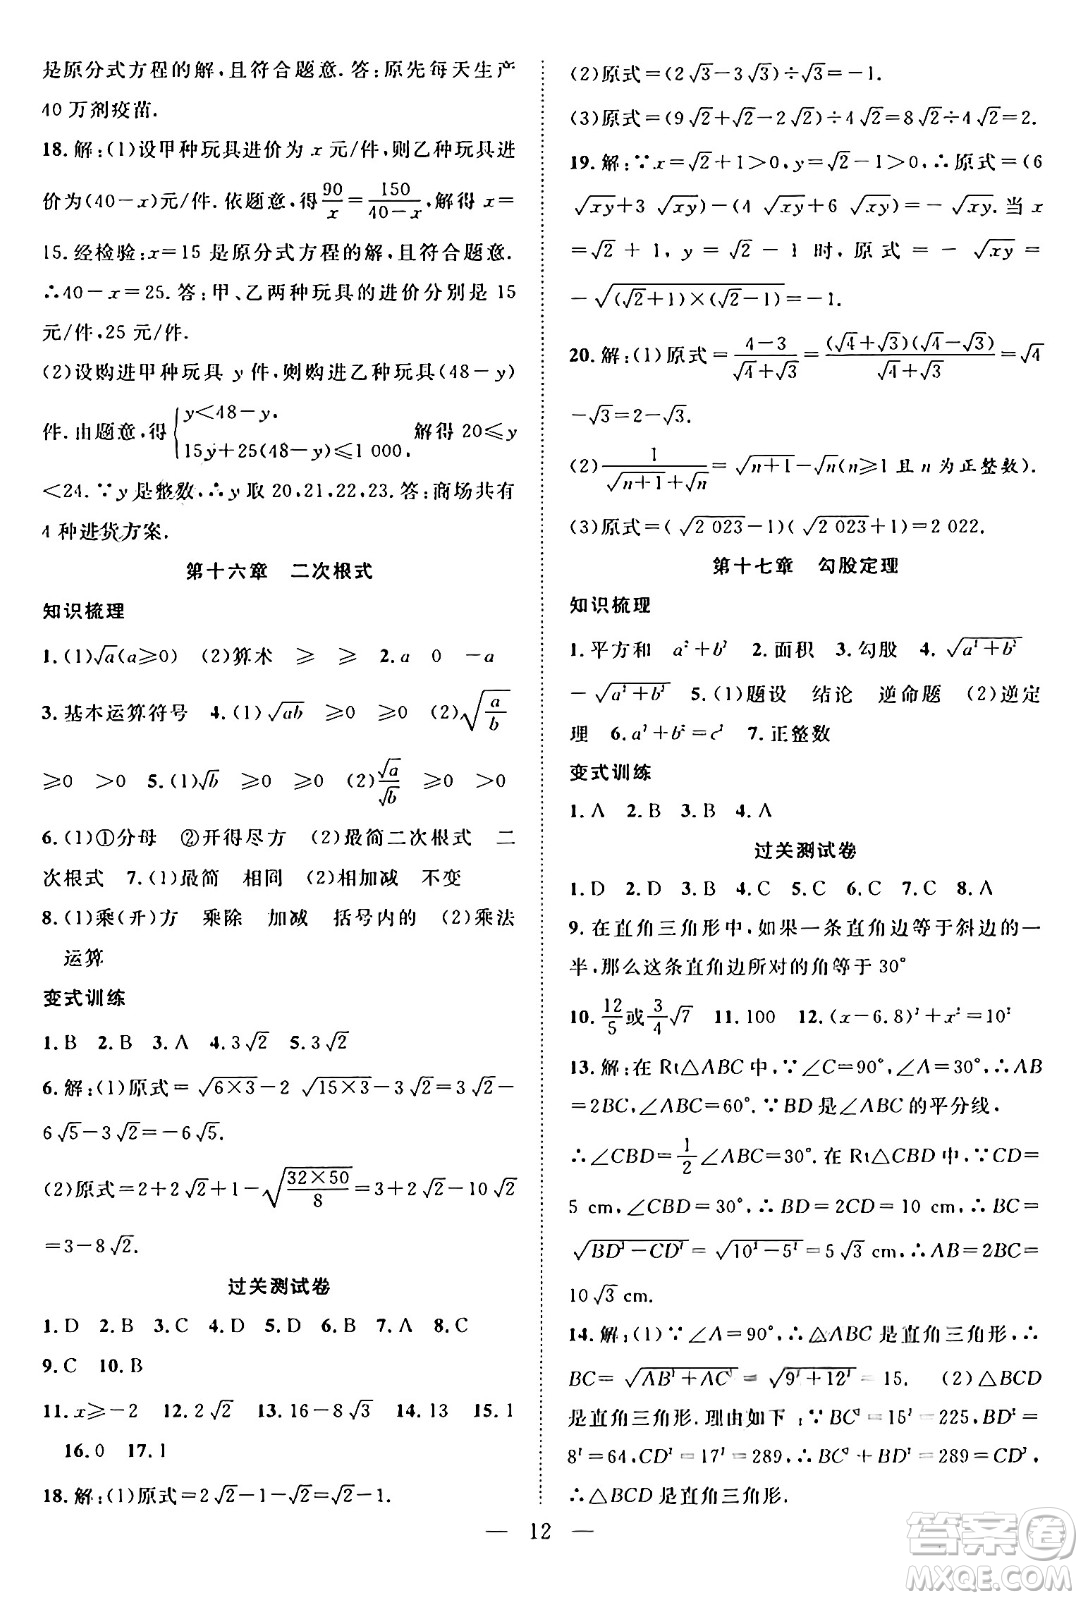 是原分式方程的解,且符合题意.答:原先每天生产
40 万剂疫苗.
18.解:(1)设甲种玩具进价为 x 元/件,则乙种玩具进
价为(40-x)元/件.依题意,得90/x=150/(40-x).解得 x=
15.经检验:x=15 是原分式方程的解,且符合题意.
∴40-x=25.答:甲、乙两种玩具的进价分别是 15
元/件,25 元/件.
(2)设购进甲种玩具 y 件,则购进乙种玩具(48-y)
件.由题意,得{y<48-y. 15y+25(48-y)≤1 000. 解得 20≤y
<24.∵y 是整数,∴y 取 20,21,22,23.答:商场共有
4 种进货方案.
第十六章 二次根式
知识梳理
1.(1)√a(a≥0) (2)算术 ≥ ≥ 2.a 0 -a
3.基本运算符号 4.(1)√ab ≥0 ≥0 (2)√(a/b)
≥0 >0 5.(1)√b ≥0 ≥0 (2)√a/√b ≥0 >0
6.(1)①分母 ②开得尽方 (2)最简二次根式 二
次根式 7.(1)最简 相同 (2)相加减 不变
8.(1)乘(开)方 乘除 加减 括号内的 (2)乘法
运算
变式训练
1.B 2.B 3.A 4.3√2 5.3√2
6.解:(1)原式=√(6×3)-2√(15×3)-3√2=3√2-
6√5-3√2=-6√5.
(2)原式=2+2√2+1-√(32×50/8)=3+2√2-10√2
=3-8√2.
过关测试卷
1.D 2.B 3.C 4.C 5.B 6.B 7.A 8.C
9.C 10.B
11.x≥-2 12.2√2 13.16-8√3 14.13 15.1
16.0 17.1
18.解:(1)原式=2√2-1-√2=√2-1.
(2)原式=(2√3-3√3)÷√3=-1.
(3)原式=(9√2+√2-2√2)÷4√2=8√2÷4√2=2.
19.解:∵x=√2+1>0,y=√2-1>0,∴原式=(6
√xy+3√xy)-(4√xy+6√xy)=-√xy.当 x
=√2+1,y=√2-1 时,原式=-√xy=
-√((√2+1)×(√2-1))=-1.
20.解:(1)原式=(4-3)/(√4+√3)=(√4+√3)(√4-√3)/(√4+√3)=√4
-√3=2-√3.
(2)1/(√(n+1)+√n)=√(n+1)-√n(n≥1 且 n 为正整数).
(3)原式=(√2 023-1)(√2 023+1)=2 022.
第十七章 勾股定理
知识梳理
1.平方和 a²+b² 2.面积 3.勾股 4.√(a²+b²)
-√(a²+b²) 5.(1)题设 结论 逆命题 (2)逆定
理 6.a²+b²=c² 7.正整数
变式训练
1.A 2.B 3.B 4.A
过关测试卷
1.D 2.D 3.C 4.B 5.D 6.B 7.C 8.A
9.在直角三角形中,如果一条直角边等于斜边的一
半,那么这条直角边所对的角等于 30°
10.12/5或3/4√7 11.100 12.(x-6.8)²+x²=10²
13.解:在 Rt△ABC 中,∵∠C=90°,∠A=30°,∴AB
=2BC,∠ABC=60°.∵BD 是∠ABC 的平分线,
∴∠CBD=1/2∠ABC=30°.在 Rt△CBD 中,∵CD=
5 cm,∠CBD=30°,∴BD=2CD=10 cm,∴BC=
√(BD²-CD²)=√(10²-5²)=5√3 cm,∴AB=2BC=
10√3 cm.
14.解:(1)∵∠A=90°,∴△ABC 是直角三角形,∴
BC=√(AB²+AC²)=√(9²+12²)=15. (2)△BCD
是直角三角形.理由如下:∵BC²=15²=225,BD²=
8²=64,CD²=17²=289,∴BC²+BD²=289=CD²,
∴△BCD 是直角三角形.
— 12 —
答案卷
MXQE.COM